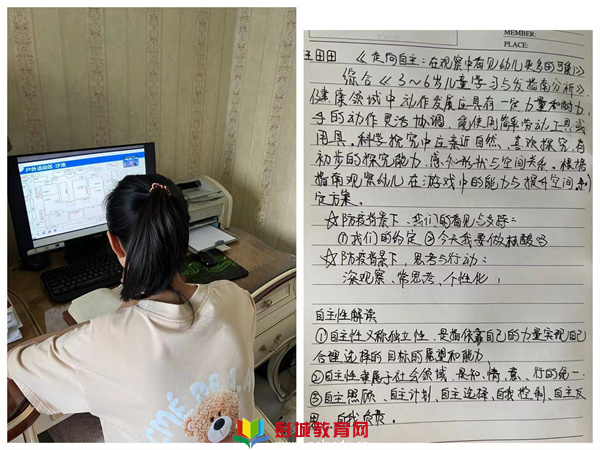 户外活动区-沙池
MEMBER:
PLACE:
王田田 《走向自主:在观察中看见幼儿更多的可能》
综合《3~6岁儿童学习与发指南分析》
健康领域中动作发展应具有一定力量和耐力,
手的动作灵活协调,能使用简单劳动工具或
用具。科学探究中应亲近自然、喜欢探究,有
初步的探究能力,感知形状与空间关系。根据
指南观察幼儿在游戏中的能力与提升空间,制
定方案。
☆防疫背景下,我们的看见与支持:
①我们的约定 ②今天我要做核酸吗
☆防疫背景下,思考与行动:
深观察、常思考、个性化,
自主性解读
①自主性又称独立性,是指依靠自己的力量实现自己
合理选择的目标的愿望和能力
②自主性隶属于社会领域,是知、情、意、行的统一
③自主照顾、自主计划、自主选择、自我控制、自主反
思、自我负责。
彭城教育网